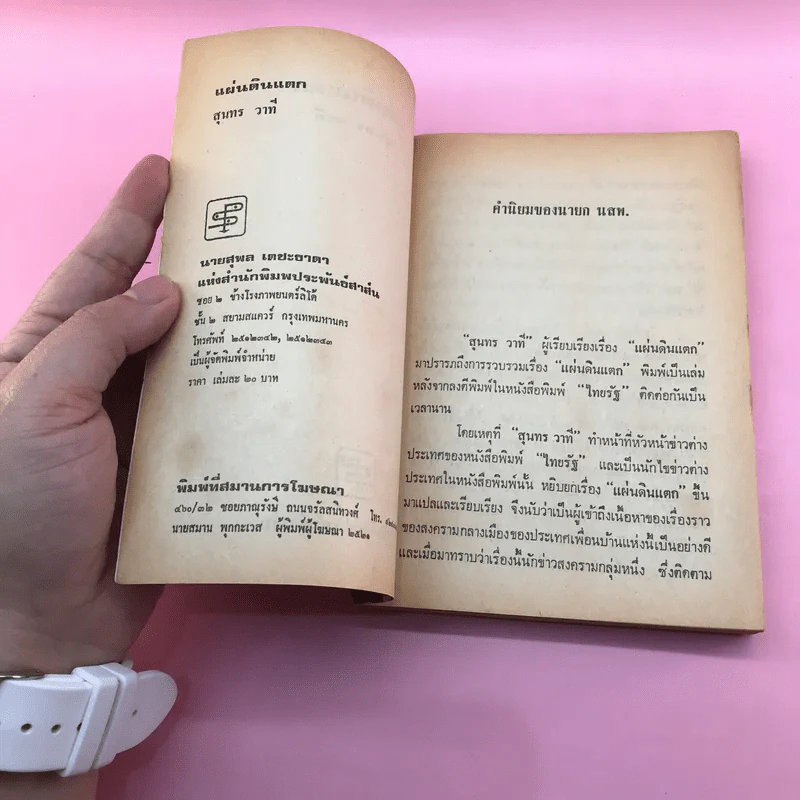 แผ่นดินแตก
สุนทร วาที
นายสุพล เตชะธาดา
แห่งสำนักพิมพ์ประพันธ์สาส์น
ซอย ๒ ข้างโรงภาพยนตร์ลิโด้
ชั้น ๒ สยามสแควร์ กรุงเทพมหานคร
โทรศัพท์ ๒๕๑๒๓๔๒, ๒๕๑๒๓๔๓
เป็นผู้จัดพิมพ์จำหน่าย
ราคา เล่มละ ๒๐ บาท
พิมพ์ที่สมานการโฆษณา
๔๖๐/๓๒ ซอยภาณุรังษี ถนนจรัลสนิทวงศ์ โทร.
นายสมาน พุกกะเวส ผู้พิมพ์ผู้โฆษณา ๒๕๒๑
คำนิยมของนายก นสพ.
"สุนทร วาที" ผู้เรียบเรียงเรื่อง "แผ่นดินแตก"
มาปรารภถึงการรวบรวมเรื่อง "แผ่นดินแตก" พิมพ์เป็นเล่ม
หลังจากลงตีพิมพ์ในหนังสือพิมพ์ "ไทยรัฐ" ติดต่อกันเป็น
เวลานาน
โดยเหตุที่ "สุนทร วาที" ทำหน้าที่หัวหน้าข่าวต่าง
ประเทศของหนังสือพิมพ์ "ไทยรัฐ" และเป็นนักไขข่าวต่าง
ประเทศในหนังสือพิมพ์นั้น หยิบยกเรื่อง "แผ่นดินแตก" ขึ้น
มาแปลและเรียบเรียง จึงนับว่าเป็นผู้เข้าถึงเนื้อหาของเรื่องราว
ของสงครามกลางเมืองของประเทศเพื่อนบ้านแห่งนี้เป็นอย่างดี
และเมื่อมาทราบว่าเรื่องนี้นักข่าวสงครามกลุ่มหนึ่ง ซึ่งติดตาม